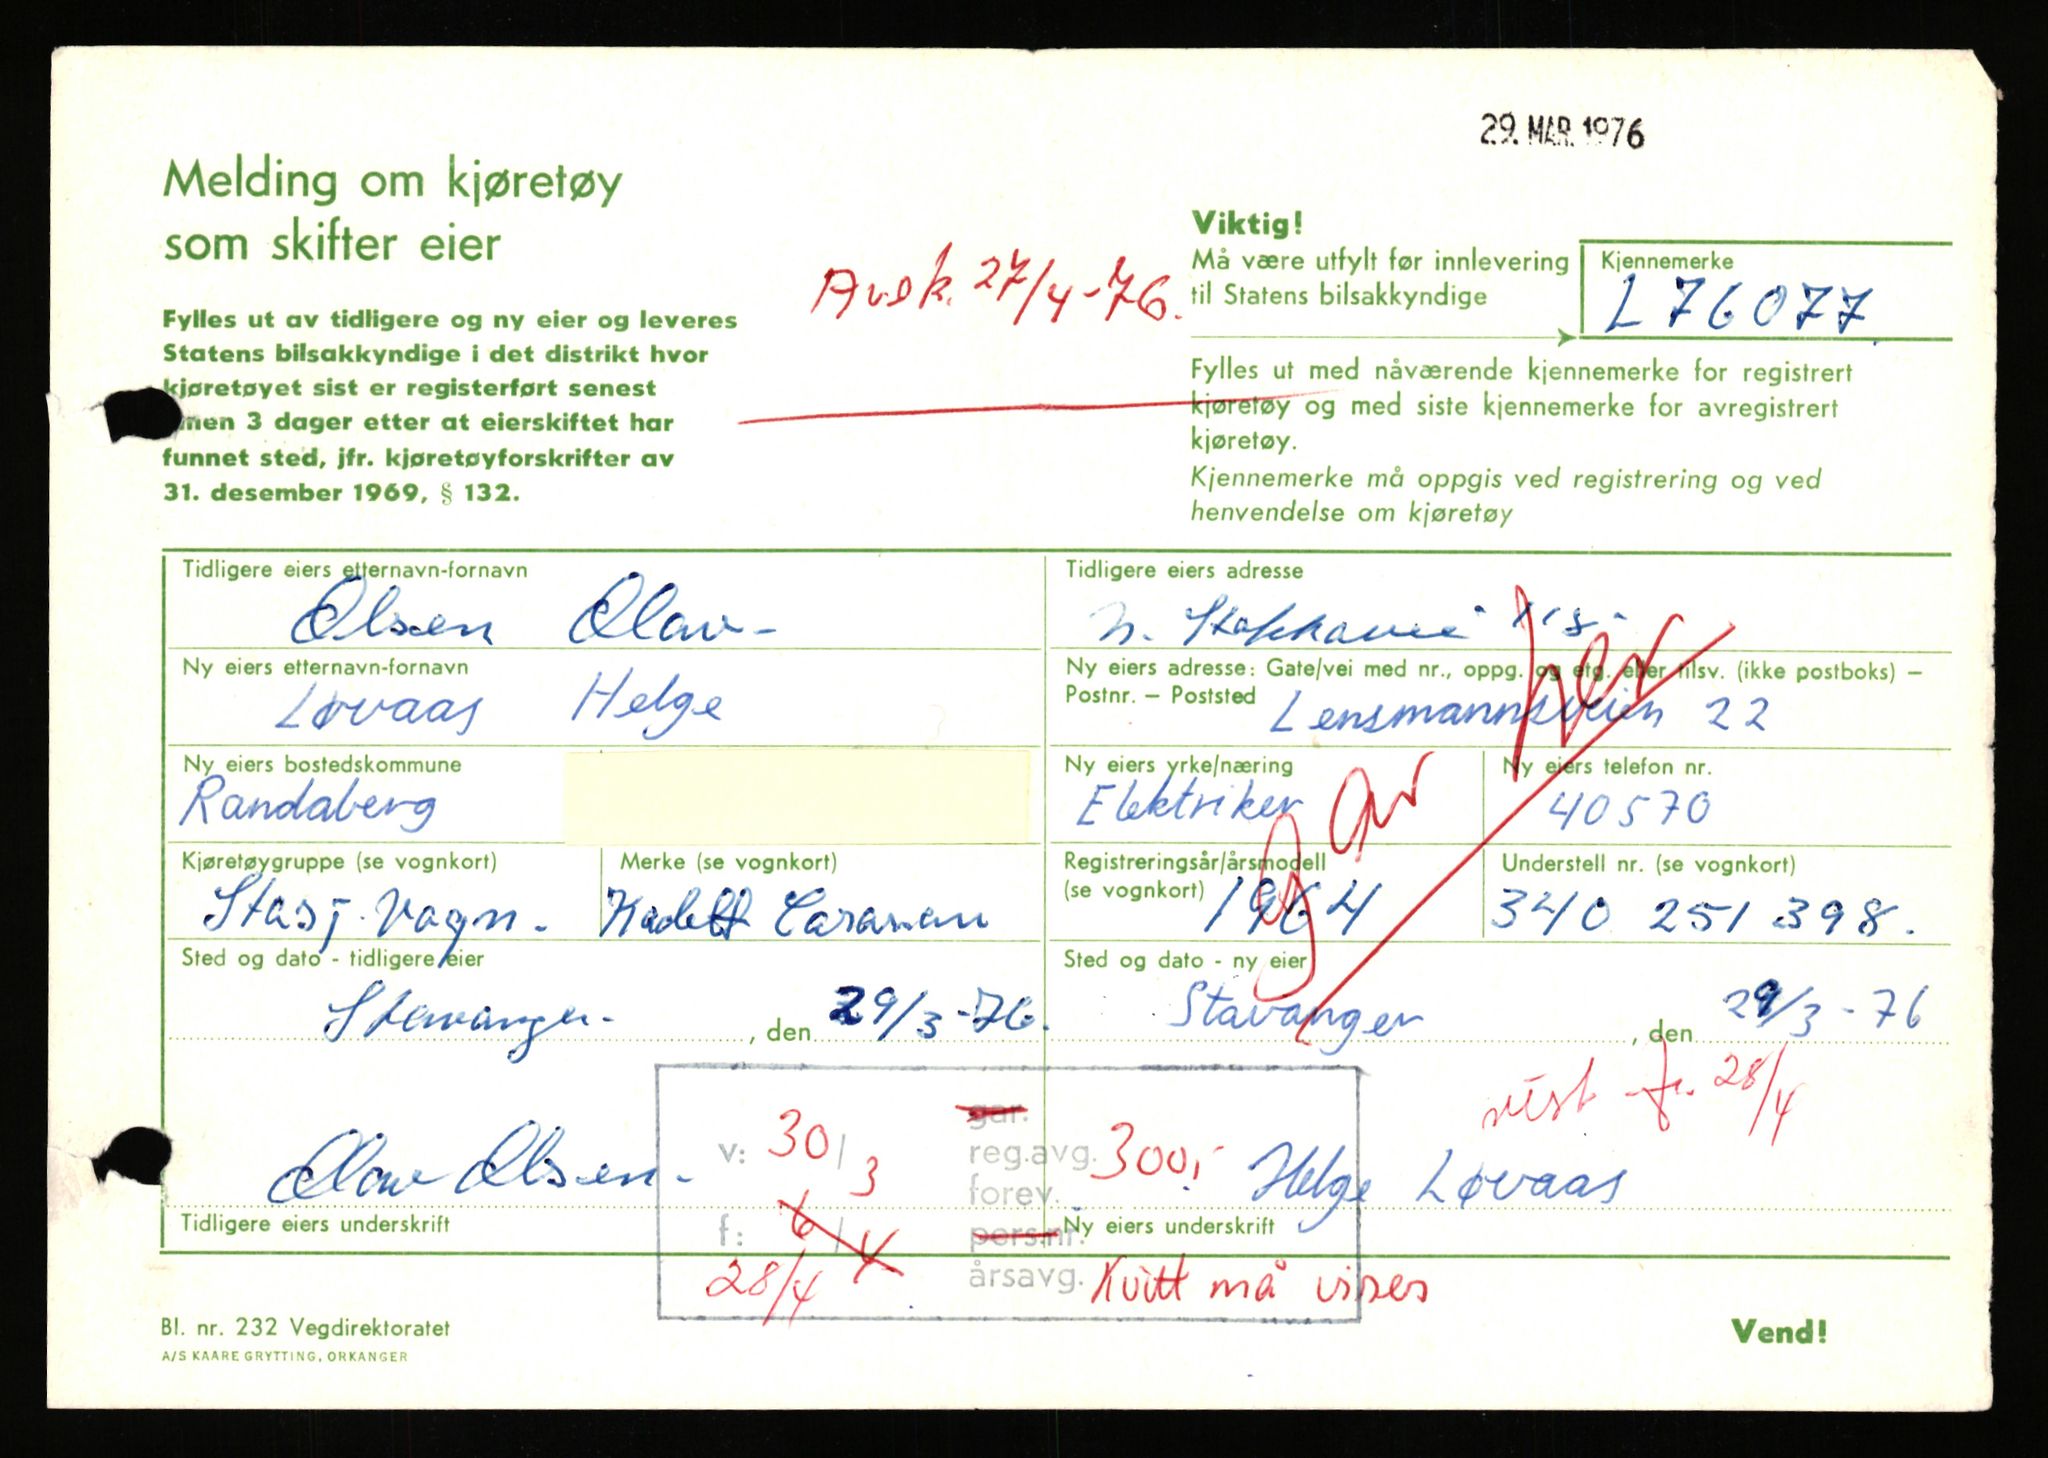 29. MAR. 1976
Melding om kjøretøy
som skifter eier
Fylles ut av tidligere og ny eier og leveres
Statens bilsakkyndige i det distrikt hvor
kjøretøyet sist er registerført senest
innen 3 dager etter at eierskiftet har
funnet sted, jfr. kjøretøyforskrifter av
31. desember 1969, § 132.
Avsk. 27/4-76.
Viktig!
Må være utfylt før innlevering
til Statens bilsakkyndige
Kjennemerke
L 76077
Fylles ut med nåværende kjennemerke for registrert
kjøretøy og med siste kjennemerke for avregistrert
kjøretøy.
Kjennemerke må oppgis ved registrering og ved
henvendelse om kjøretøy
Tidligere eiers etternavn-fornavn
Olsen Olav-
Tidligere eiers adresse
Ny eiers etternavn-fornavn
Løvaas Helge
Ny eiers adresse: Gate/vei med nr., oppg. og etg. eller tilsv. (ikke postboks) –
Postnr. – Poststed
Lensmannsveien 22
Ny eiers bostedskommune
Randaberg
Ny eiers yrke/næring
Elektriker
Ny eiers telefon nr.
40570
Kjøretøygruppe (se vognkort)
Stasj. Vogn.
Merke (se vognkort)
Kadett Caravan
Registreringsår/årsmodell
(se vognkort)
1964
Understell nr. (se vognkort)
340 251 398.
gar her
Sted og dato - tidligere eier
Stavanger. , den 29/3-76.
Sted og dato - ny eier
Stavanger , den 29/3-76
vist fr. 28/4
Olav Olsen.
Tidligere eiers underskrift
v: 30/3
f: 6/4
28/4
gar.
reg.avg. 300,-
forev.
pers.nr.
årsavg. Kvitt må vises
Helge Løvaas
Ny eiers underskrift
Bl. nr. 232 Vegdirektoratet
A/S KAARE GRYTTING, ORKANGER
Vend!